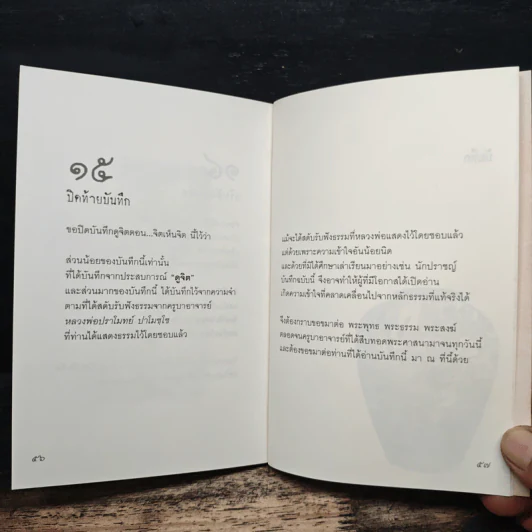 ๑๕
ปิดท้ายบันทึก
ขอปิดบันทึกดูจิตตอน...จิตเห็นจิต นี้ไว้ว่า
ส่วนน้อยของบันทึกนี้เท่านั้น
ที่ได้บันทึกจากประสบการณ์ "ดูจิต"
และส่วนมากของบันทึกนี้ ได้บันทึกไว้จากความจำ
ตามที่ได้สดับรับฟังธรรมจากครูบาอาจารย์
หลวงพ่อปราโมทย์ ปาโมชฺโช
ที่ท่านได้แสดงธรรมไว้โดยชอบแล้ว
๕๖
แม้จะได้สดับรับฟังธรรมที่หลวงพ่อแสดงไว้โดยชอบแล้ว
แต่ด้วยเพราะความเข้าใจอันน้อยนิด
และด้วยที่มิได้ศึกษาเล่าเรียนมาอย่างเช่น นักปราชญ์
บันทึกฉบับนี้ จึงอาจทำให้ผู้ที่มีโอกาสได้เปิดอ่าน
เกิดความเข้าใจที่คลาดเคลื่อนไปจากหลักธรรมที่แท้จริงได้
จึงต้องกราบขอขมาต่อ พระพุทธ พระธรรม พระสงฆ์
ตลอดจนครูบาอาจารย์ที่ได้สืบทอดพระศาสนามาจนทุกวันนี้
และต้องขอขมาต่อท่านที่ได้อ่านบันทึกนี้ มา ณ ที่นี้ด้วย
๕๗